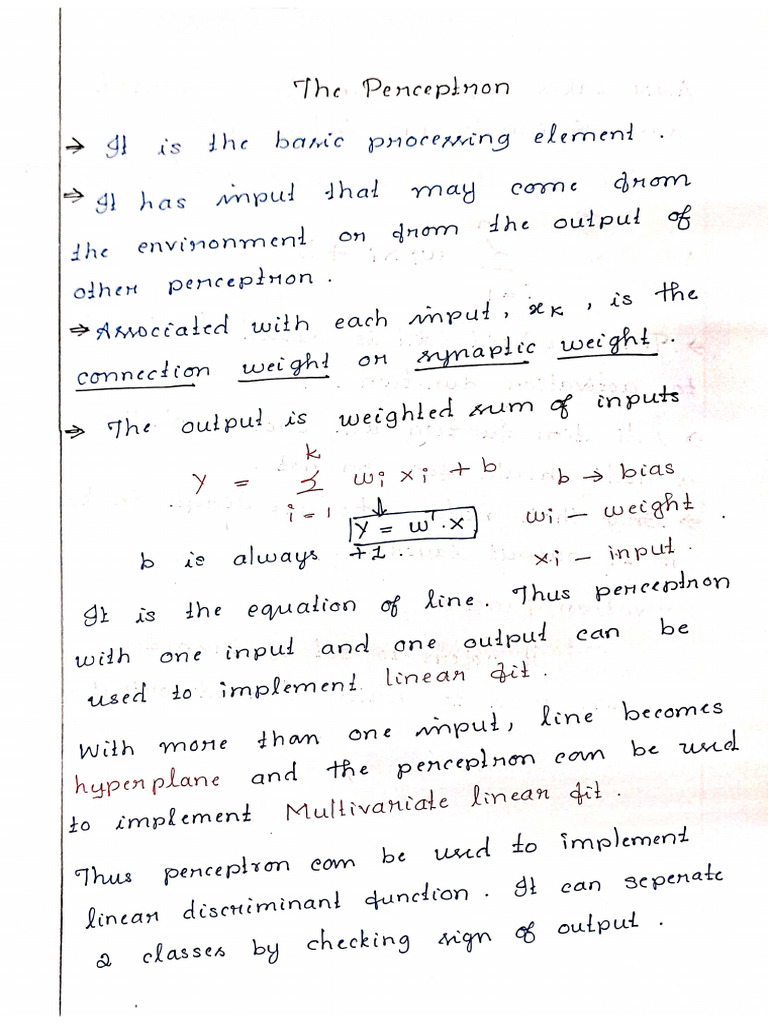 The Perceptron
⇒ It is the basic processing element.
⇒ It has input that may come from
the environment or from the output of
other perceptron.
⇒ Associated with each input, xₖ, is the
connection weight or synaptic weight.
⇒ The output is weighted sum of inputs
k
y = Σ wᵢ xᵢ + b b → bias
i = 1 wᵢ – weight
↓
y = wᵀ·x
b is always +1. xᵢ – input.
It is the equation of line. Thus perceptron
with one input and one output can be
used to implement linear fit.
With more than one input, line becomes
hyperplane and the perceptron can be used
to implement Multivariate linear fit.
Thus perceptron can be used to implement
linear discriminant function. It can seperate
2 classes by checking sign of output.